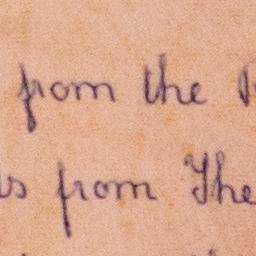 from the
from The